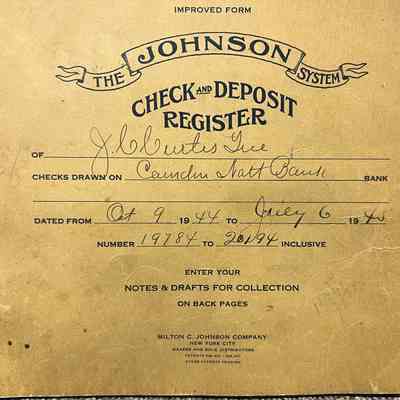 IMPROVED FORM
THE JOHNSON SYSTEM
CHECK AND DEPOSIT
REGISTER
OF J. C. Curtis Inc
CHECKS DRAWN ON Camden Natl Bank BANK
DATED FROM Oct 9 1944 TO July 6 194
NUMBER 19784 TO 20194 INCLUSIVE
ENTER YOUR
NOTES & DRAFTS FOR COLLECTION
ON BACK PAGES
MILTON C. JOHNSON COMPANY
NEW YORK CITY
MAKERS AND SOLE DISTRIBUTORS
OTHER PATENTS PENDING